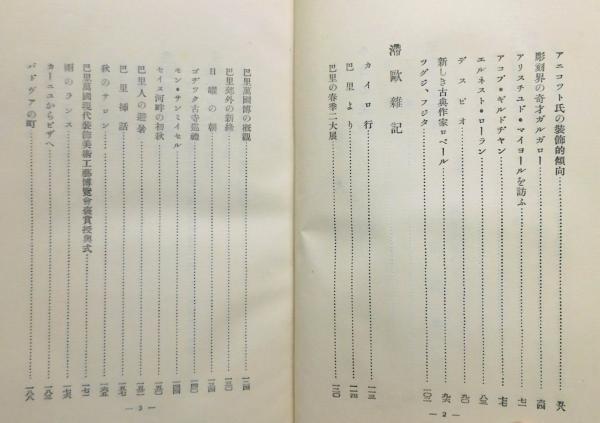 アニコフト氏の装飾的傾向 五八
彫刻界の奇才ガルガロー 六四
アリスチユド・マイヨールを訪ふ 七一
アコブ・ギルドヂヤン 七七
エルネスト・ローラン 八三
デスピオ 九〇
新しき古典作家ロベール 九六
ツグジ、フジタ 一〇二
滯歐雜記
カイロ行 一一三
巴里より 一一四
巴里の春季二大展 一二〇
— 2 —
巴里萬國博の概観 一二四
巴里郊外の新緑 一三〇
日曜の朝
ゴヂツク古寺巡禮 一四〇
モン・サンミイセル
セイヌ河畔の初秋
巴里人の避暑
巴里挿話
秋のサロン
巴里萬國現代装飾美術工藝博覽會褒賞授與式
雨のランス
カーニユからピザへ
パドヴアの町
— 3 —